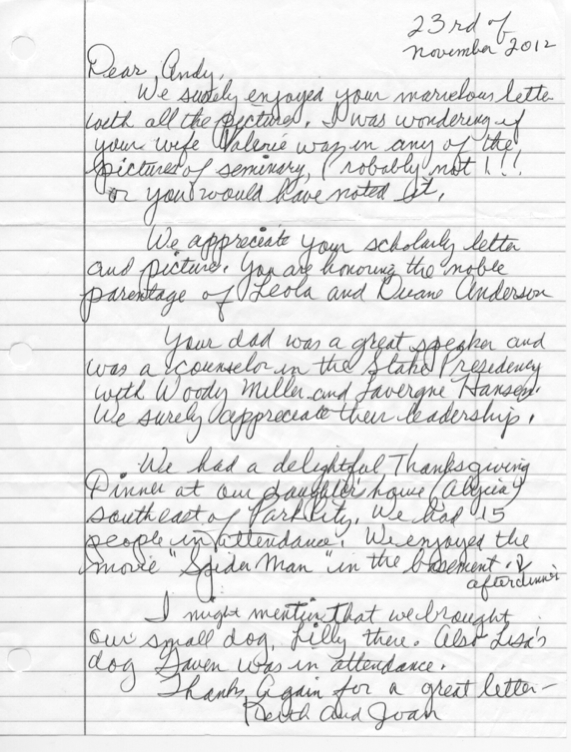 23rd of
November 2012
Dear Andy,
We surely enjoyed your marvelous letter
with all the pictures. I was wondering if
your wife Valerie was in any of the
pictures of seminary, Probably not!!!
or you would have noted it.
We appreciate your scholarly letter
and picture. You are honoring the noble
parentage of Leola and Duane Anderson
Your dad was a great speaker and
was a counselor in the Stake Presidency
with Woody Miller and Lavergne Hansen.
We surely appreciate their leadership.
We had a delightful Thanksgiving
Dinner at our daughter's house
southeast of Park City. We had 15
people in attendance. We enjoyed the
movie "Spider Man" in the basement.
after dinner
I might mention that we brought
our small dog, Lilly there. Also Lisa's
dog was in attendance.
Thanks Again for a great letter—
Keith and Joan